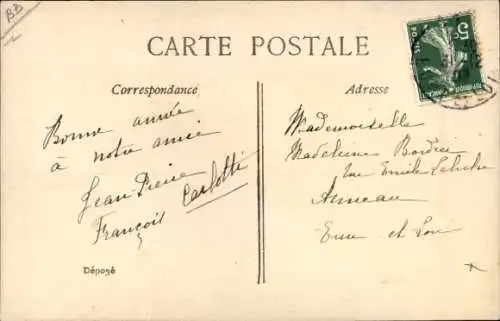 BB
CARTE POSTALE
Correspondance
Bonne année
à notre amie
Jean Pierre
François
Carlotti
Déposé
Adresse
Mademoiselle
Madeleine Bordier
rue Emile Labiche
Auneau
Eure et Loir
5c